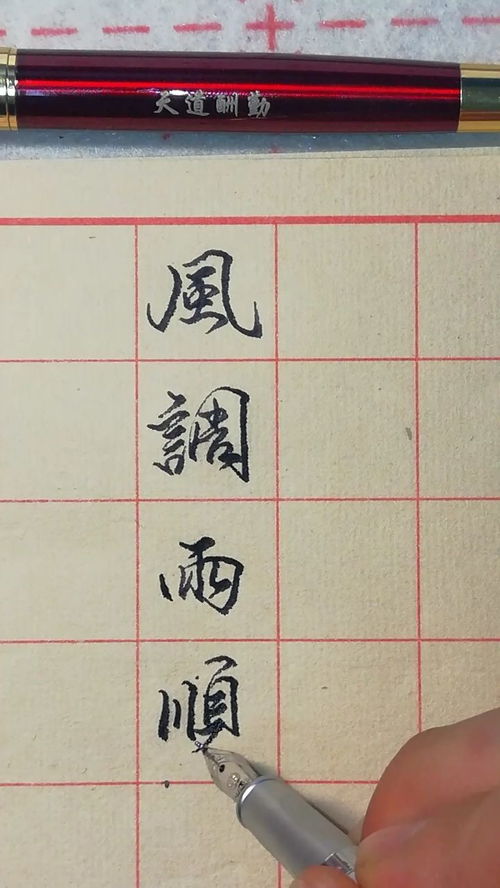 天道酬勤
風調雨順